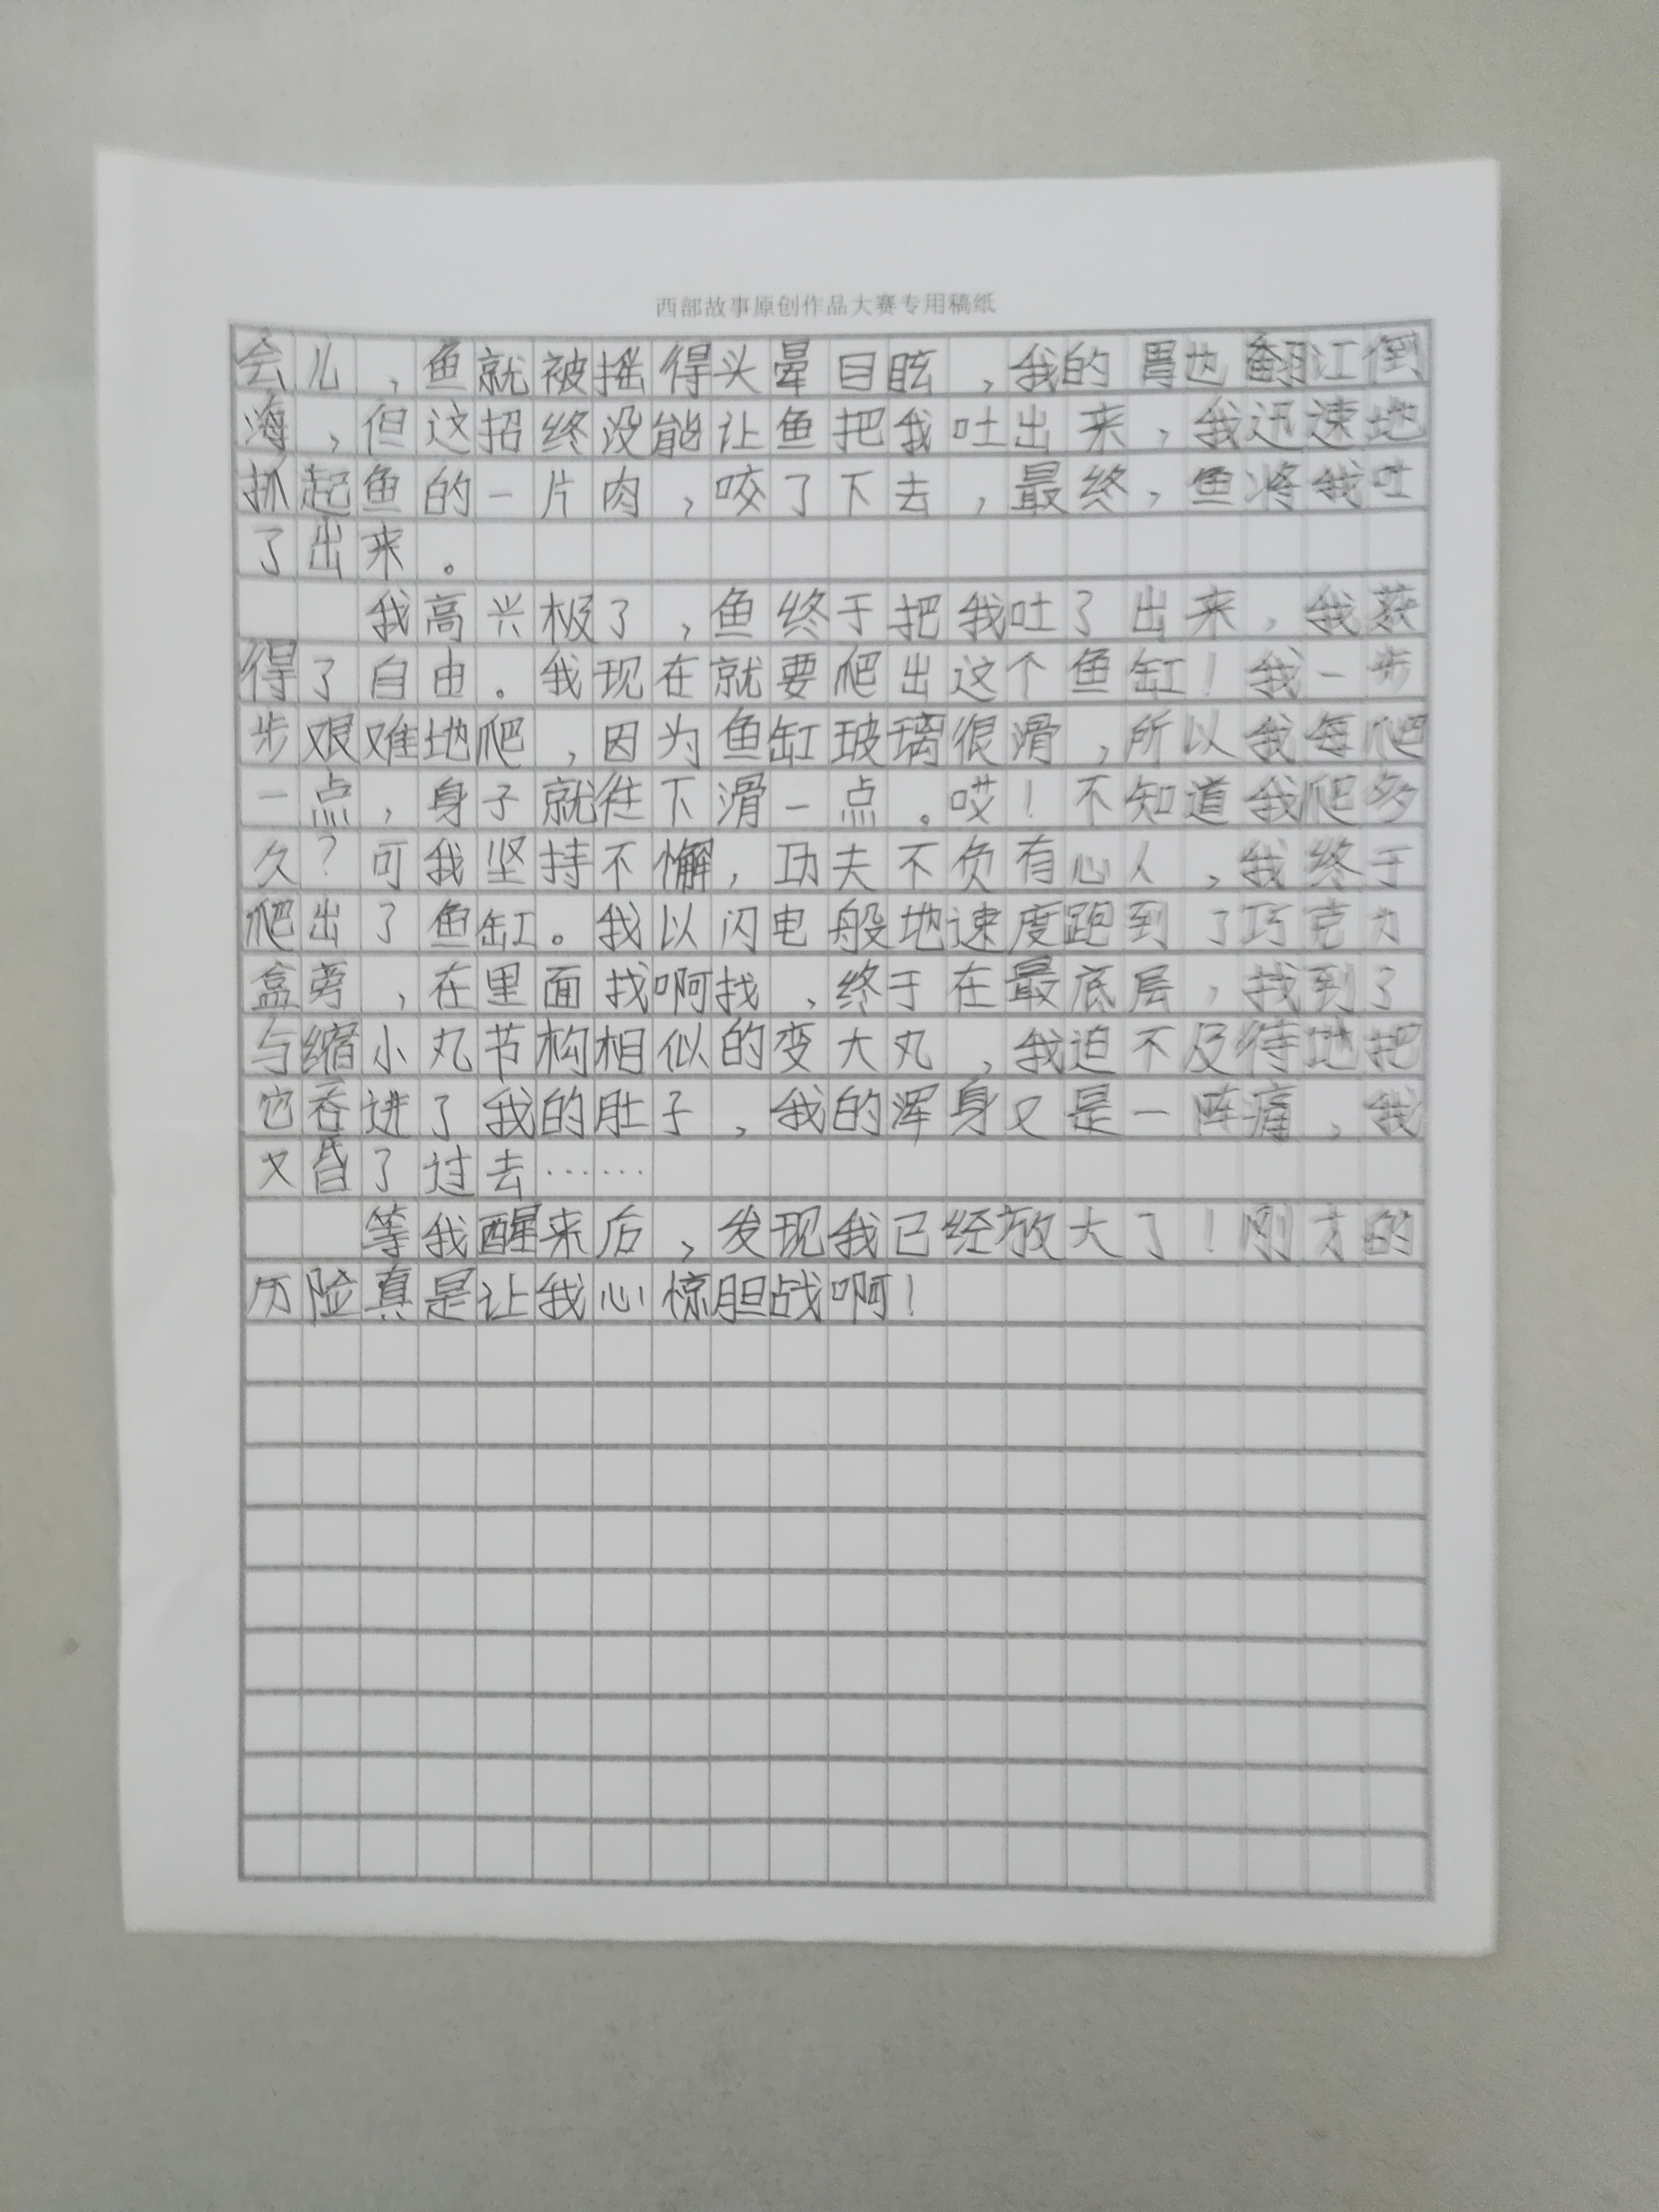 西部故事原创作品大赛专用稿纸
会儿，鱼就被摇得头晕目眩，我的胃也翻江倒
海，但这招终没能让鱼把我吐出来，我迅速地
抓起鱼的一片肉，咬了下去，最终，鱼将我吐
了出来。
我高兴极了，鱼终于把我吐了出来，我获
得了自由。我现在就要爬出这个鱼缸！我一步
步艰难地爬，因为鱼缸玻璃很滑，所以我每爬
一点，身子就往下滑一点。哎！不知道我爬多
久？可我坚持不懈，功夫不负有心人，我终于
爬出了鱼缸。我以闪电般地速度跑到了巧克力
盒旁，在里面找啊找，终于在最底层，找到了
与缩小丸节构相似的变大丸，我迫不及待地把
它吞进了我的肚子，我的浑身又是一阵痛，我
又昏了过去……
等我醒来后，发现我已经放大了！刚才的
历险真是让我心惊胆战啊！